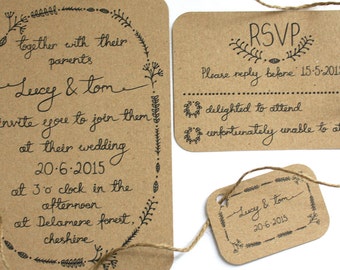 together with their
parents
Lucy & tom
invite you to join them
at their wedding
20·6·2015
at 3 o'clock in the
afternoon
at Delamere forest,
cheshire
RSVP
Please reply before 15·5·201
delighted to attend
unfortunately unable to a
Lucy & tom
20·6·2015